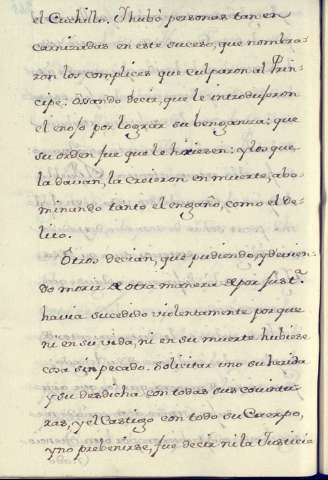 el Cuchillo. I hubó personas tan en
carnizadas en este suceso, que nombra-
ron los complices que culparon al Prin-
cipe. Osando decir, que le introdujeron
el enojo por lograr su benganza: que
su orden fue que le hiriesen: y los que,
la davian, la crecieron en muerte, abo-
minando tanto el engaño, como el de-
lito.
Otros decian, que pudiendo, y devien-
do morir de otra manera por just.ª
havia sucedido violentamente por que
ni en su vida, ni en su muerte hubiese
cosa sin pecado. Solicitar uno su herida
y su desdicha con todas sus coiuntu-
ras, y el Castigo con todo su Cuerpo,
y no prebenirse, fue decir ni la Justicia